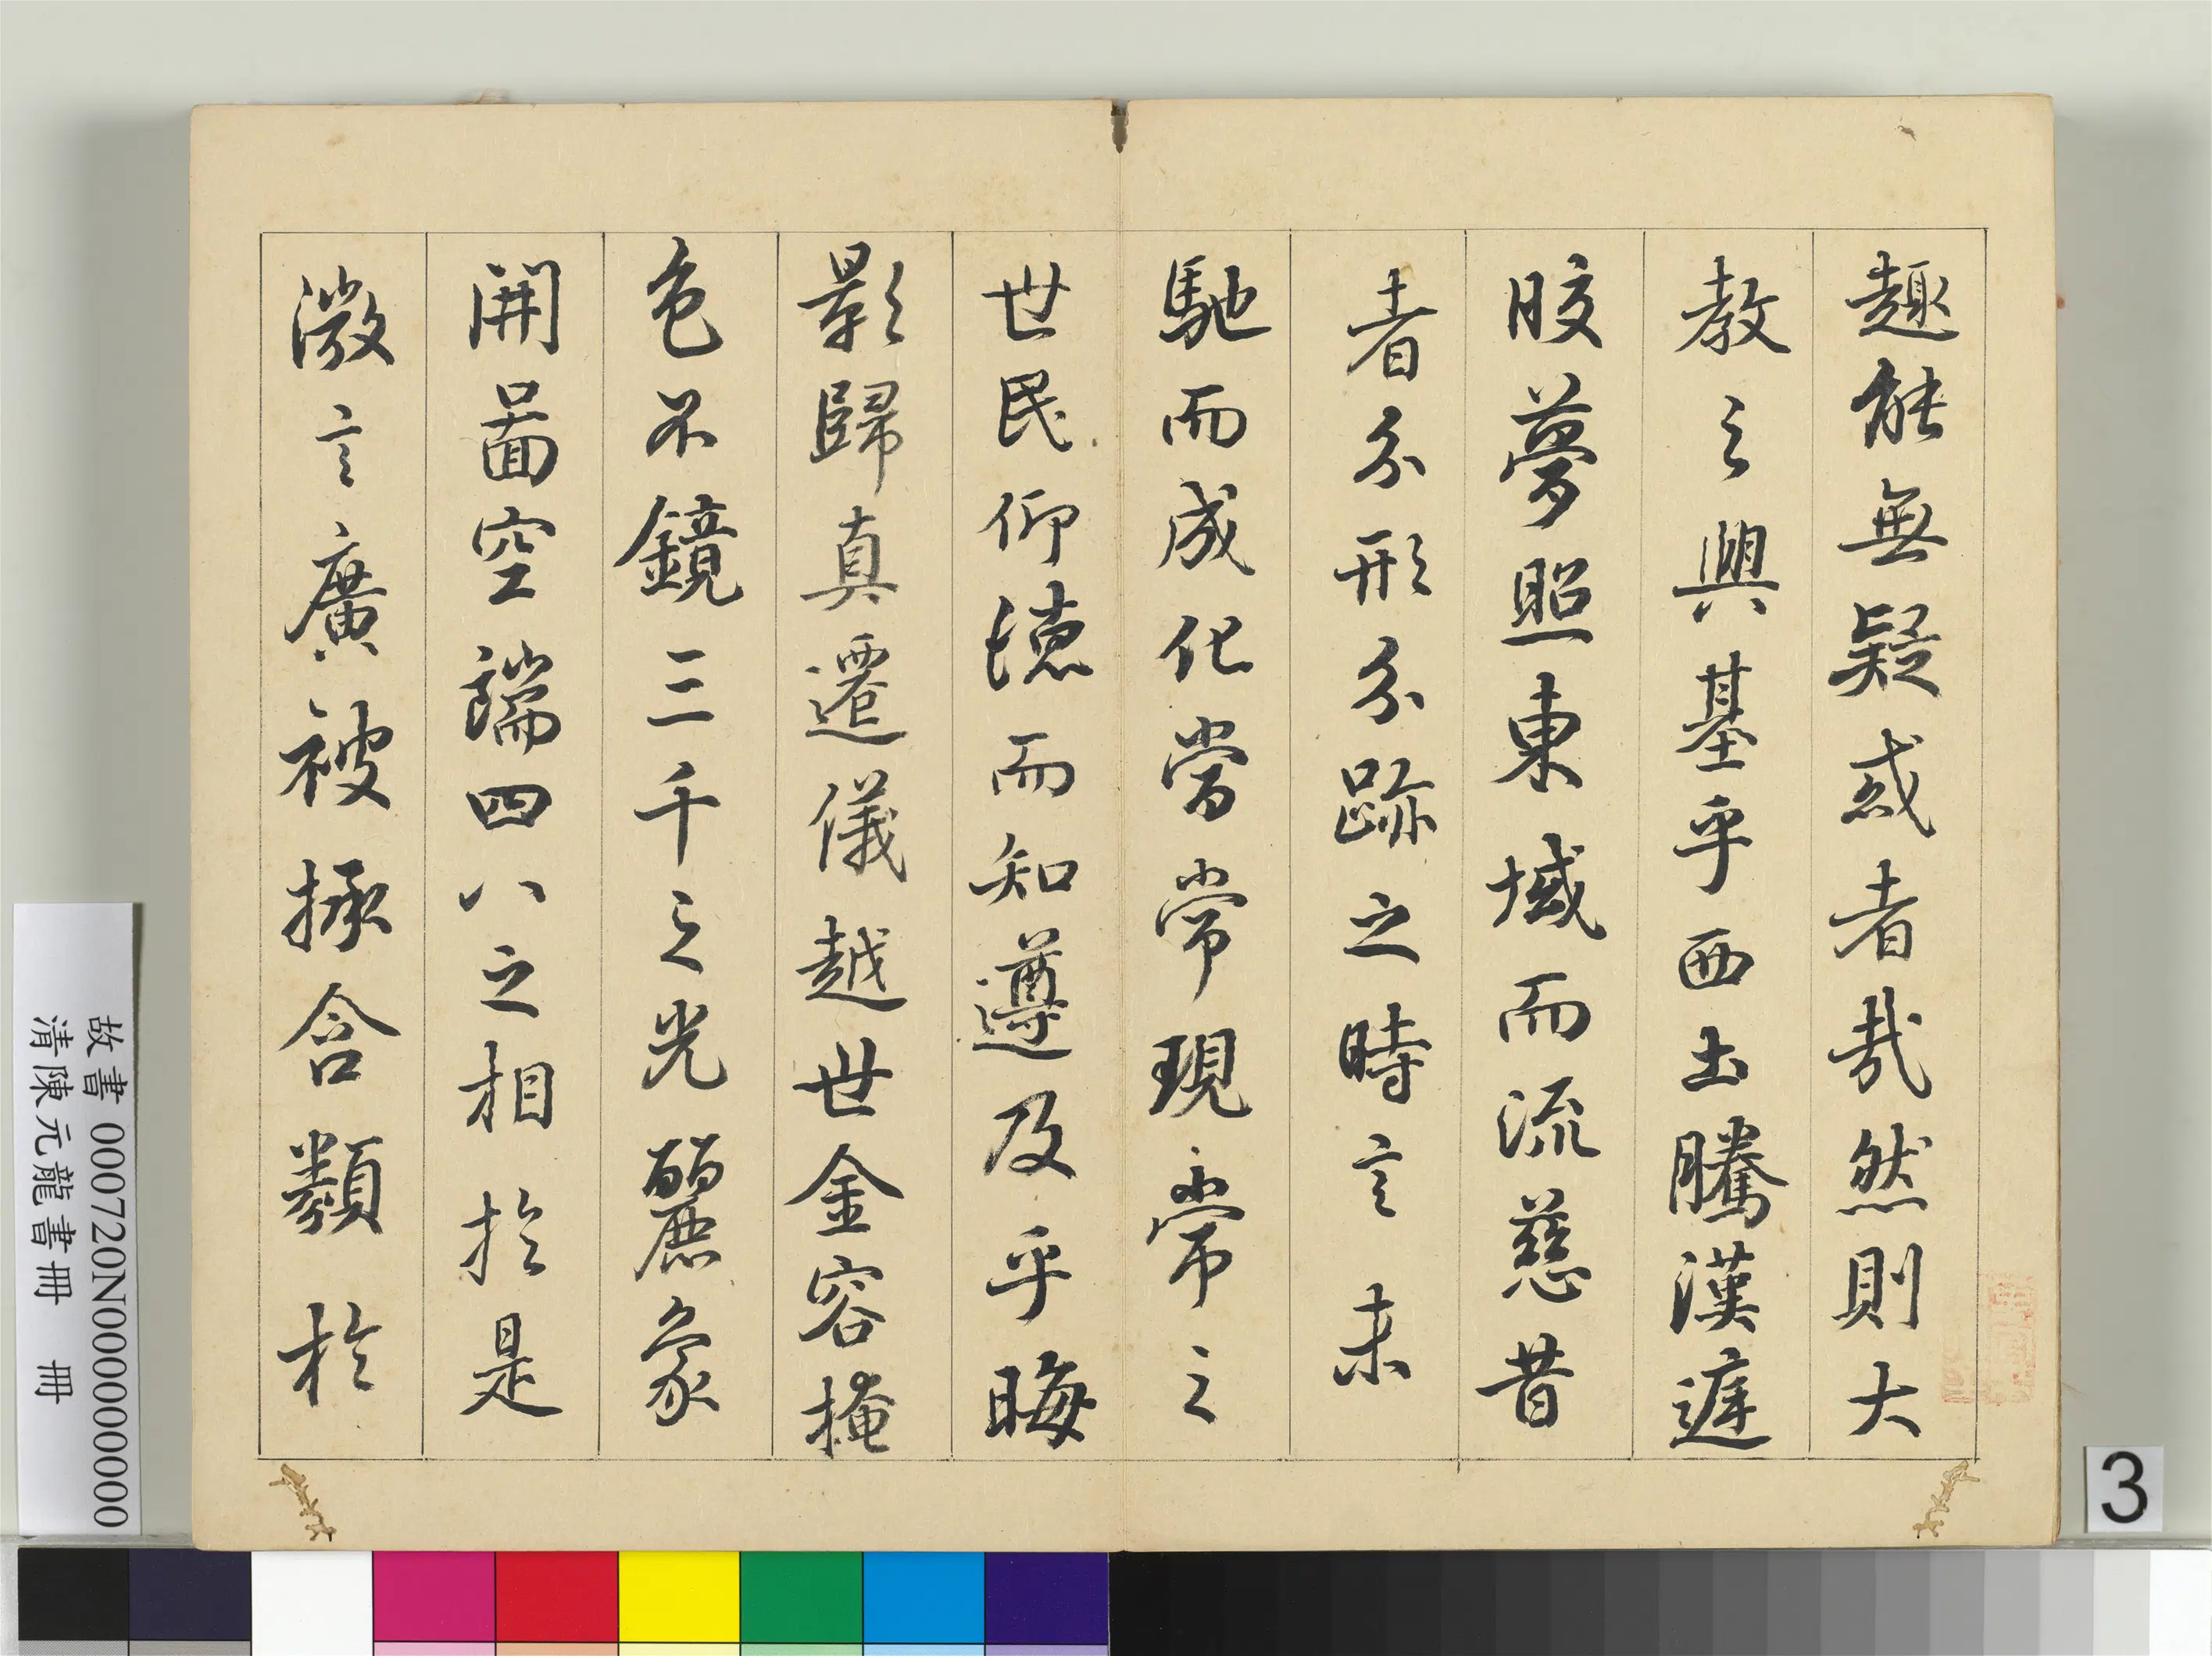 趣能無疑惑者哉然則大
教之興基乎西土騰漢庭
皎夢照東域而流慈昔
者分形分跡之時言未
馳而成化當常現常之
世民仰德而知遵及乎晦
影歸真遷儀越世金容掩
色不鏡三千之光麗象
開圖空端四八之相於是
微言廣被拯含類於
故書 000720N000000000
清陳元龍書冊 冊
3